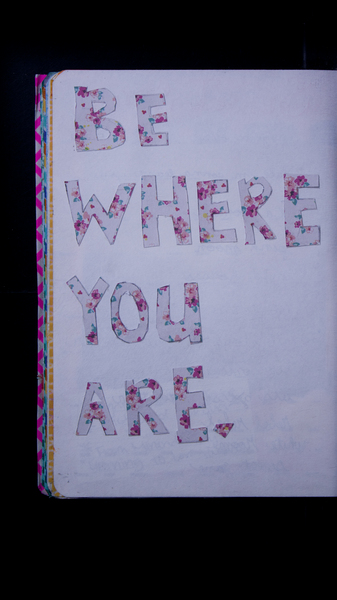 BE
WHERE
YOU
ARE.